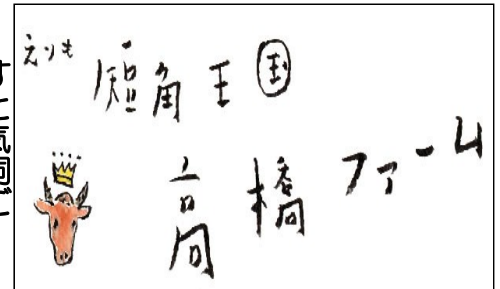 えりも
短角王国
高橋ファーム